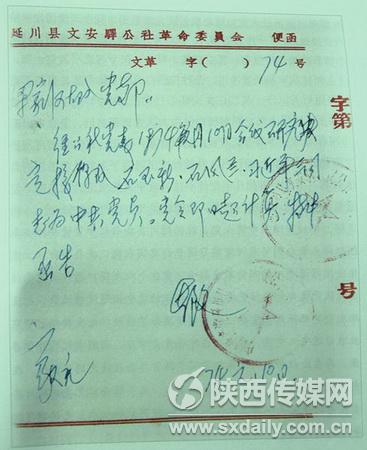 延川县文安驛公社革命委員会 便函
文革 字( ) 74 号
梁家河大队党支部:
经公社党委1974年1月10日会议研究决
定接收石玉新、石风兰、习近平同
志为中共党员。党令即日起计算,特此
函告
敬礼
74.1.10日
字第
号
陕西传媒网
www.sxdaily.com.cn